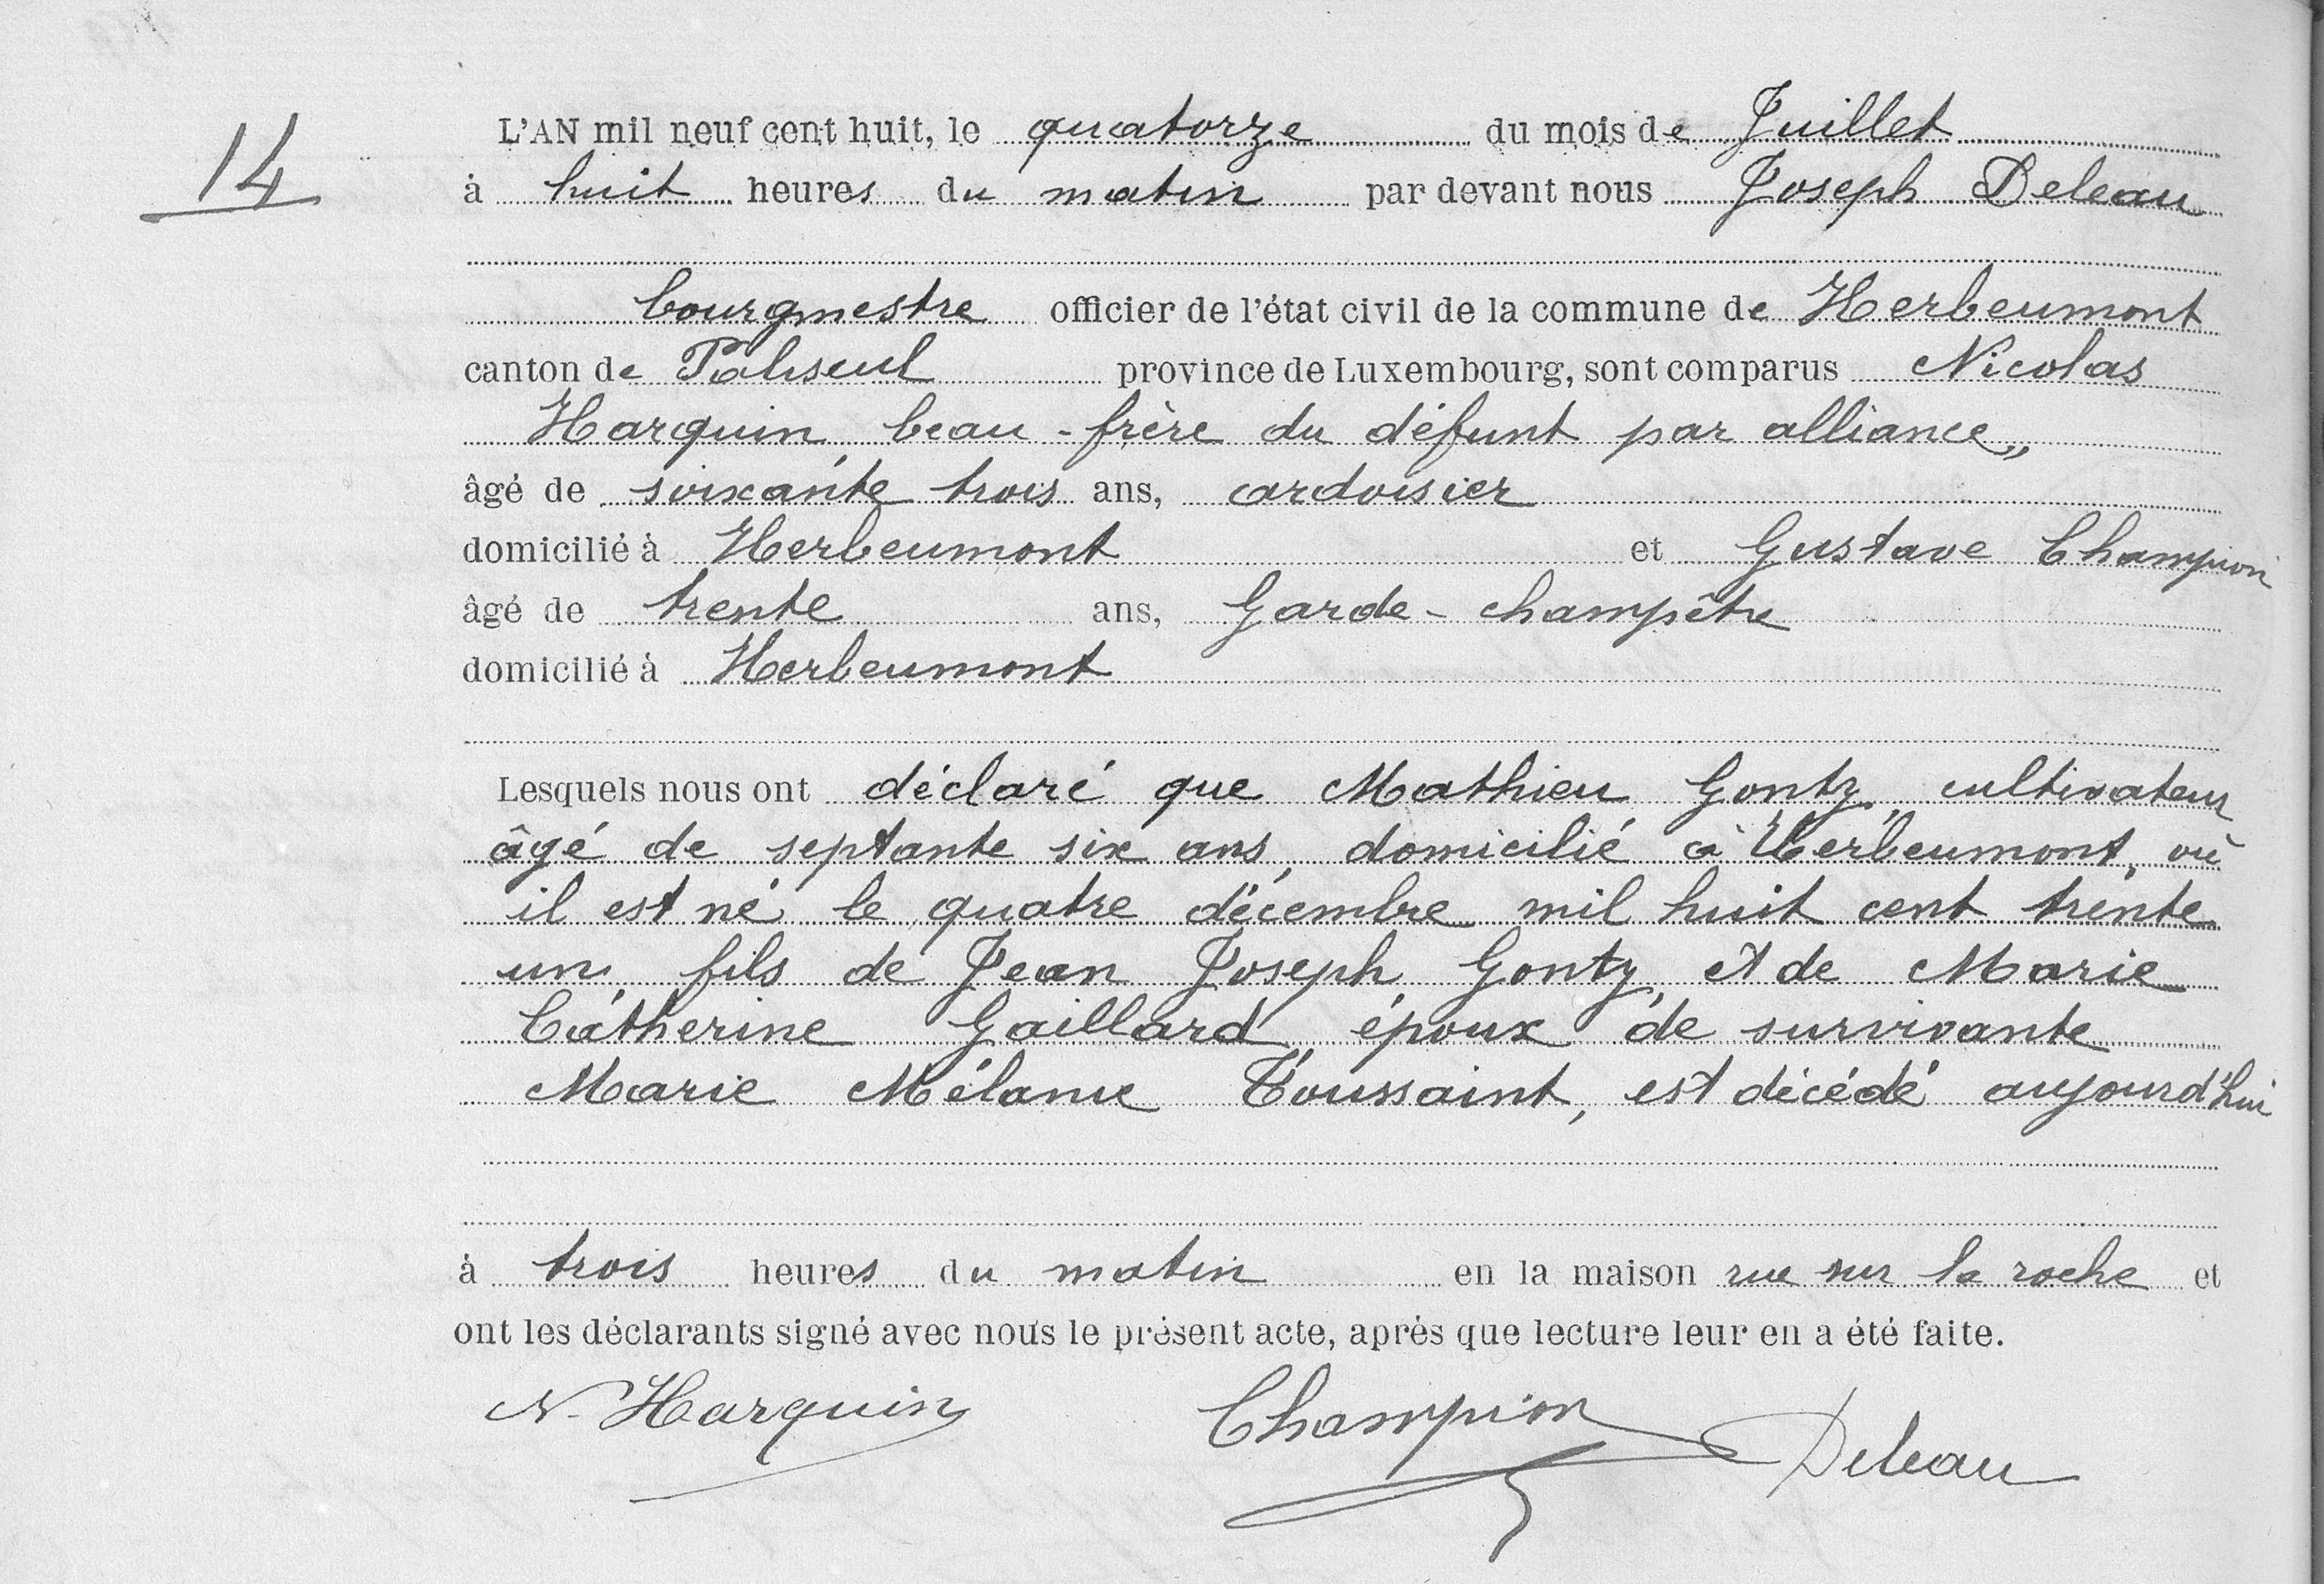 14
L'AN mil neuf cent huit, le quatorze du mois de Juillet
à huit heures du matin par devant nous Joseph Deleau
bourgmestre officier de l'état civil de la commune de Herbeumont
canton de Paliseul province de Luxembourg, sont comparus Nicolas
Harquin, beau-frère du défunt par alliance,,
âgé de soixante trois ans, ardoisier
domicilié à Herbeumont et Gustave Champion
âgé de trente ans, Garde-champêtre
domicilié à Herbeumont
Lesquels nous ont déclaré que Mathieu Gontz, cultivateur
âgé de septante six ans, domicilié à Herbeumont, où
il est né le quatre décembre mil huit cent trente
un, fils de Jean Joseph Gontz, et de Marie
Catherine Gaillard, époux de survivante
Marie Mélanie Toussaint, est décédé aujourd'hui
à trois heures du matin en la maison rue sur la roche et
ont les déclarants signé avec nous le présent acte, après que lecture leur en a été faite.
N. Harquin Champion Deleau